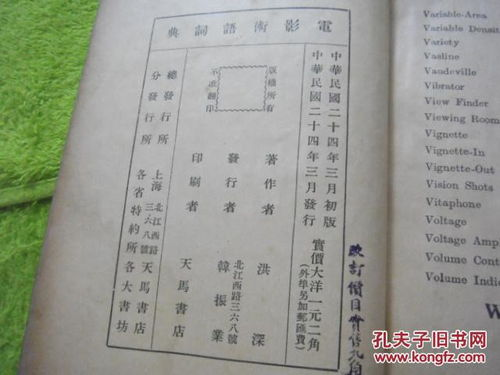 電影術語詞典
中華民國二十四年三月初版
中華民國二十四年三月發行
實價大洋一元二角
(外埠另加郵匯費)
版權所有
不准翻印
著作者 洪深
發行者 韓振業
北江西路三六八號
印刷者 天馬書店
總發行所 上海北江西路三六八號 天馬書店
分發行所 各省特約所各大書坊
改訂價目實售九角
Variable-Area
Variable Densit
Variety
Vasline
Vaudeville
Vibrator
View Finder
Viewing Room
Vignette
Vignette-In
Vignette-Out
Vision Shots
Vitaphone
Voltage
Voltage Amp
Volume Cont
Volume Indic
W
孔夫子旧书网
www.kongfz.com